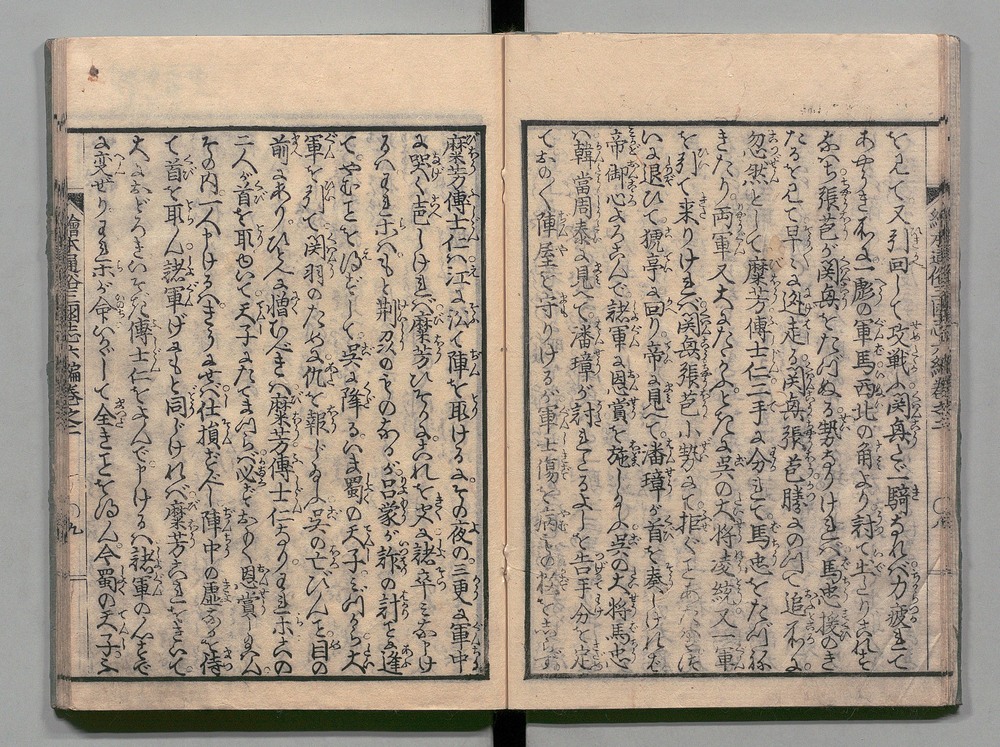 を見て又引回して攻戦ふ関興たゞ一騎なれバ力疲れて
あやうきおりふし一彪の軍馬西北の角より討て出たりこれを
ふせぐ張苞が関興をたづぬる勢なりけれバ馬忠援のき
たるを見て早々に迯走る関興張苞勝にのつて追所に
忽然として糜芳傅士仁二手に分れて馬忠をたづね
きたり両軍又大にたゝかふところに呉の大将凌統又一軍
を引て来りけれバ関興張苞小勢にて拒ぐことあたはず
いに退ひて猇亭に回り帝に見へて潘璋が首を奉りけれバ
帝御心よろこんで諸軍に恩賞を施しける呉の大将馬忠
ハ韓當周泰に見へて潘璋が討れたるよしを告手分を定
ておの〱陣屋を守りけるが軍士傷を病もの極をしらず
糜芳傅士仁ハ江に沿て陣を取けるにその夜の三更に軍中
に哭く声しけれバ糜芳ひそかにこれを聞に諸卒ミなかけ
るハわれ等ハもと荊刕のものなるが呂蒙が詐の計に逢
てやむことを得ずして呉に降るいま蜀の天子ミづから大
軍を引て関羽のために仇を報じ給ふ呉の亡びんこと目の
前にありひとへに憎むべきハ糜芳傅士仁なりわれ等この
二人が首を取もつて天子にたてまつらバ必ずおもく恩賞し給ハん
その内一人申けるハきうにせバ仕損ぜん陣中の虚なるを待
て首を取ん諸軍げにもと同じけれバ糜芳これをきいて
大におどろきいそぎ傅士仁をよんで申けるハ諸軍の心すで
に変ぜりわれ等が命いかゞして全きことを得ん今蜀の天子ふ
繪本通俗三國志六編巻之二
〇九